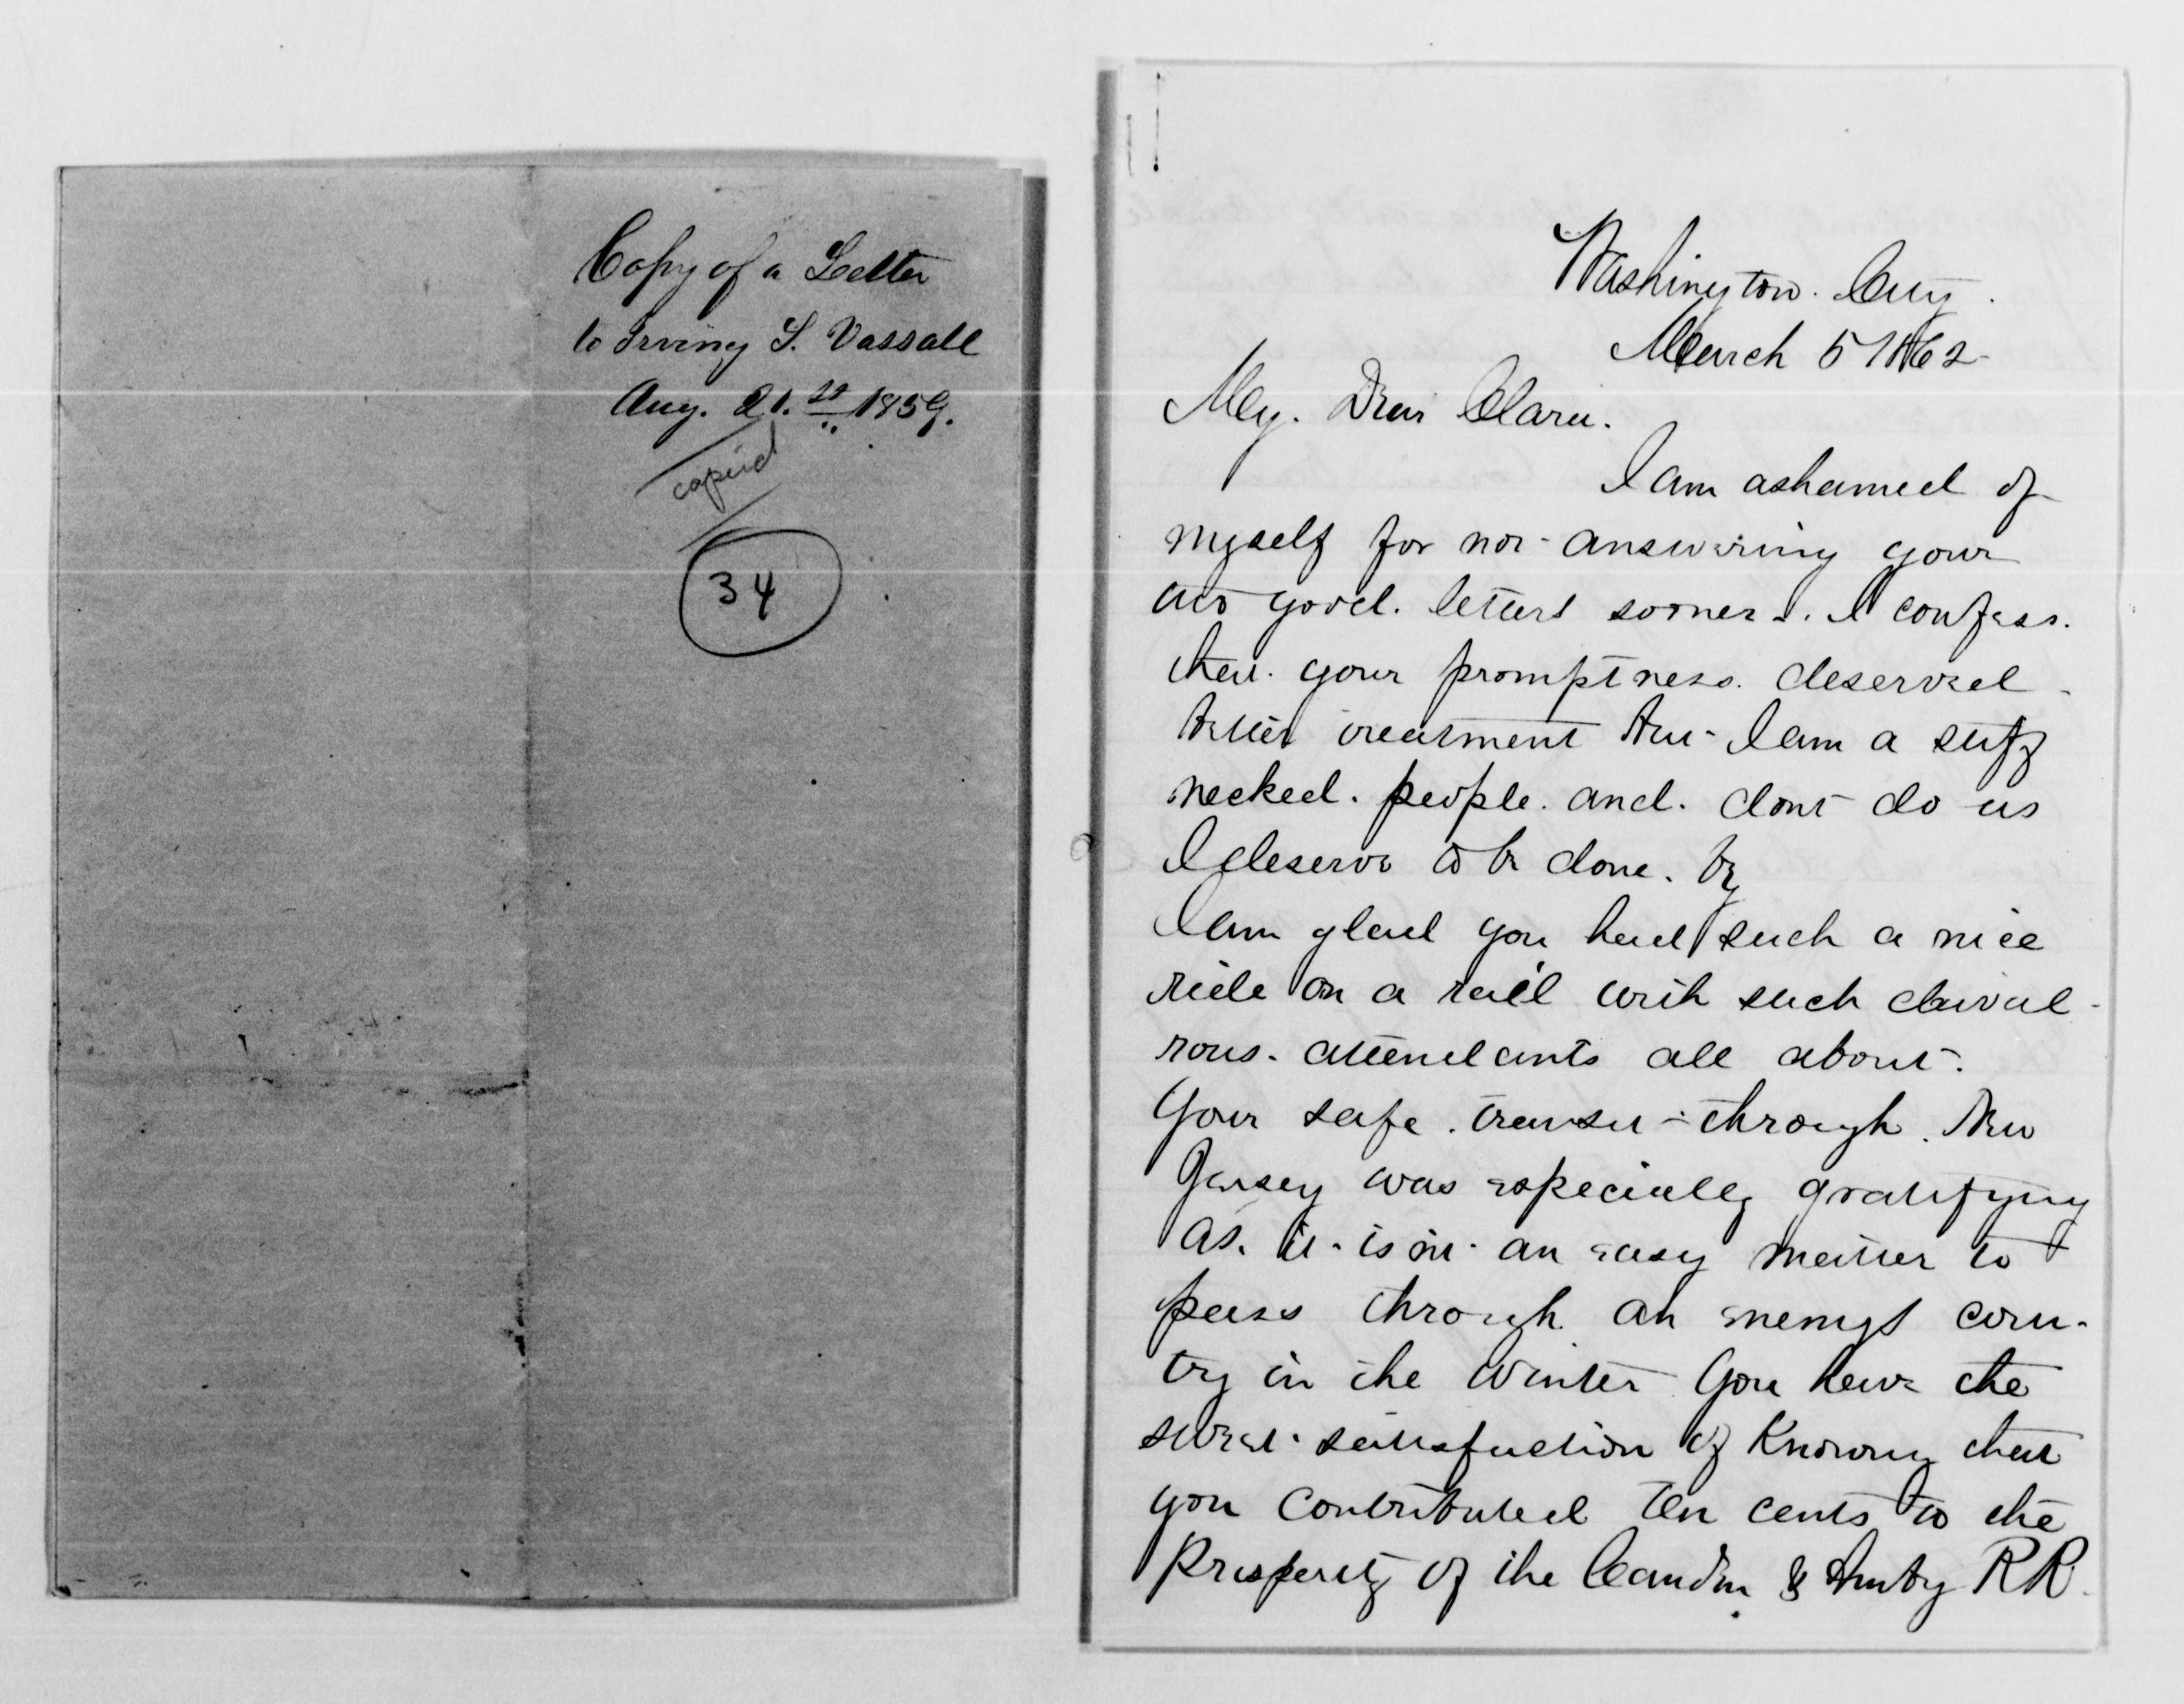 Copy of a Letter
to Irving S. Vassall
Aug. 21.st 1859.
copied
34
Washington. City.
March 5 1862
My. Dear Clara.
I am ashamed of
myself for not answering your
two good. letters sooner. I confess.
that. your promptness. deserved
better treatment but I am a stiff
necked. people. and. dont do as
I deserve to be done. by
I am glad you had such a nice
ride on a rail with such chival-
rous. attendants all about.
Your safe. transit through. New
Jersey was especially gratifying
as. it. isnt. an easy matter to
pass through an enemys coun-
try in the winter You have the
sweet satisfaction of knowing that
you contributed ten cents to the
prosperity of the Camden & Amboy RR.